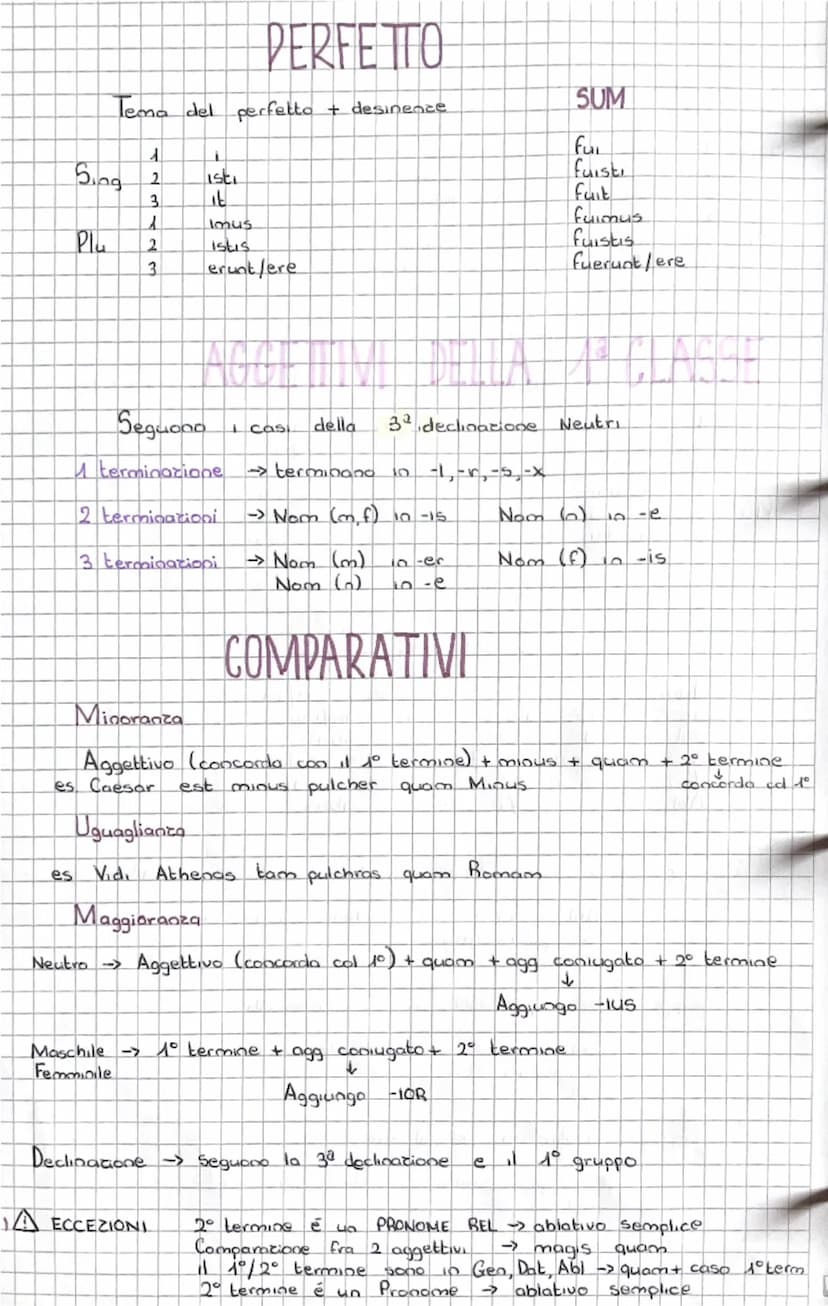 PERFETTO
Tema del perfetto + desinenze SUM
Sing 1 i fui
2 isti fuisti
3 it fuit
Plu 1 imus fuimus
2 istis fuistis
3 erunt/ere fuerunt/ere
AGGETTIVI DELLA 1ª CLASSE
Seguono i casi della 3ª declinazione Neutri
1 terminazione → terminano in -l,-r,-s,-x
2 terminazioni → Nom (m,f) in -is Nom (n) in -e
3 terminazioni → Nom (m) in -er Nom (f) in -is
Nom (n) in -e
COMPARATIVI
Minoranza
Aggettivo (concorda con il 1° termine) + minus + quam + 2° termine
↓
es Caesar est minus pulcher quam Minus concorda col 1°
Uguaglianza
es Vidi Athenas tam pulchras quam Romam
Maggioranza
Neutro → Aggettivo (concorda col 1°) + quam + agg coniugato + 2° termine
↓
Aggiungo -IUS
Maschile → 1° termine + agg coniugato + 2° termine
Femminile ↓
Aggiungo -IOR
Declinazione → Seguono la 3ª declinazione e il 1° gruppo
! ECCEZIONI 2° termine é un PRONOME REL → ablativo semplice
Comparazione fra 2 aggettivi → magis quam
il 1°/2° termine sono in Gen, Dat, Abl → quam + caso 1° term
2° termine é un Pronome → ablativo semplice